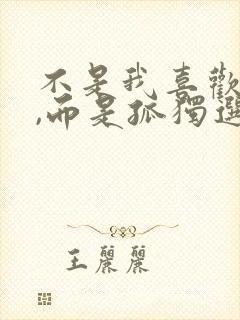 不是我喜歡
,而是孤獨選
王麗麗